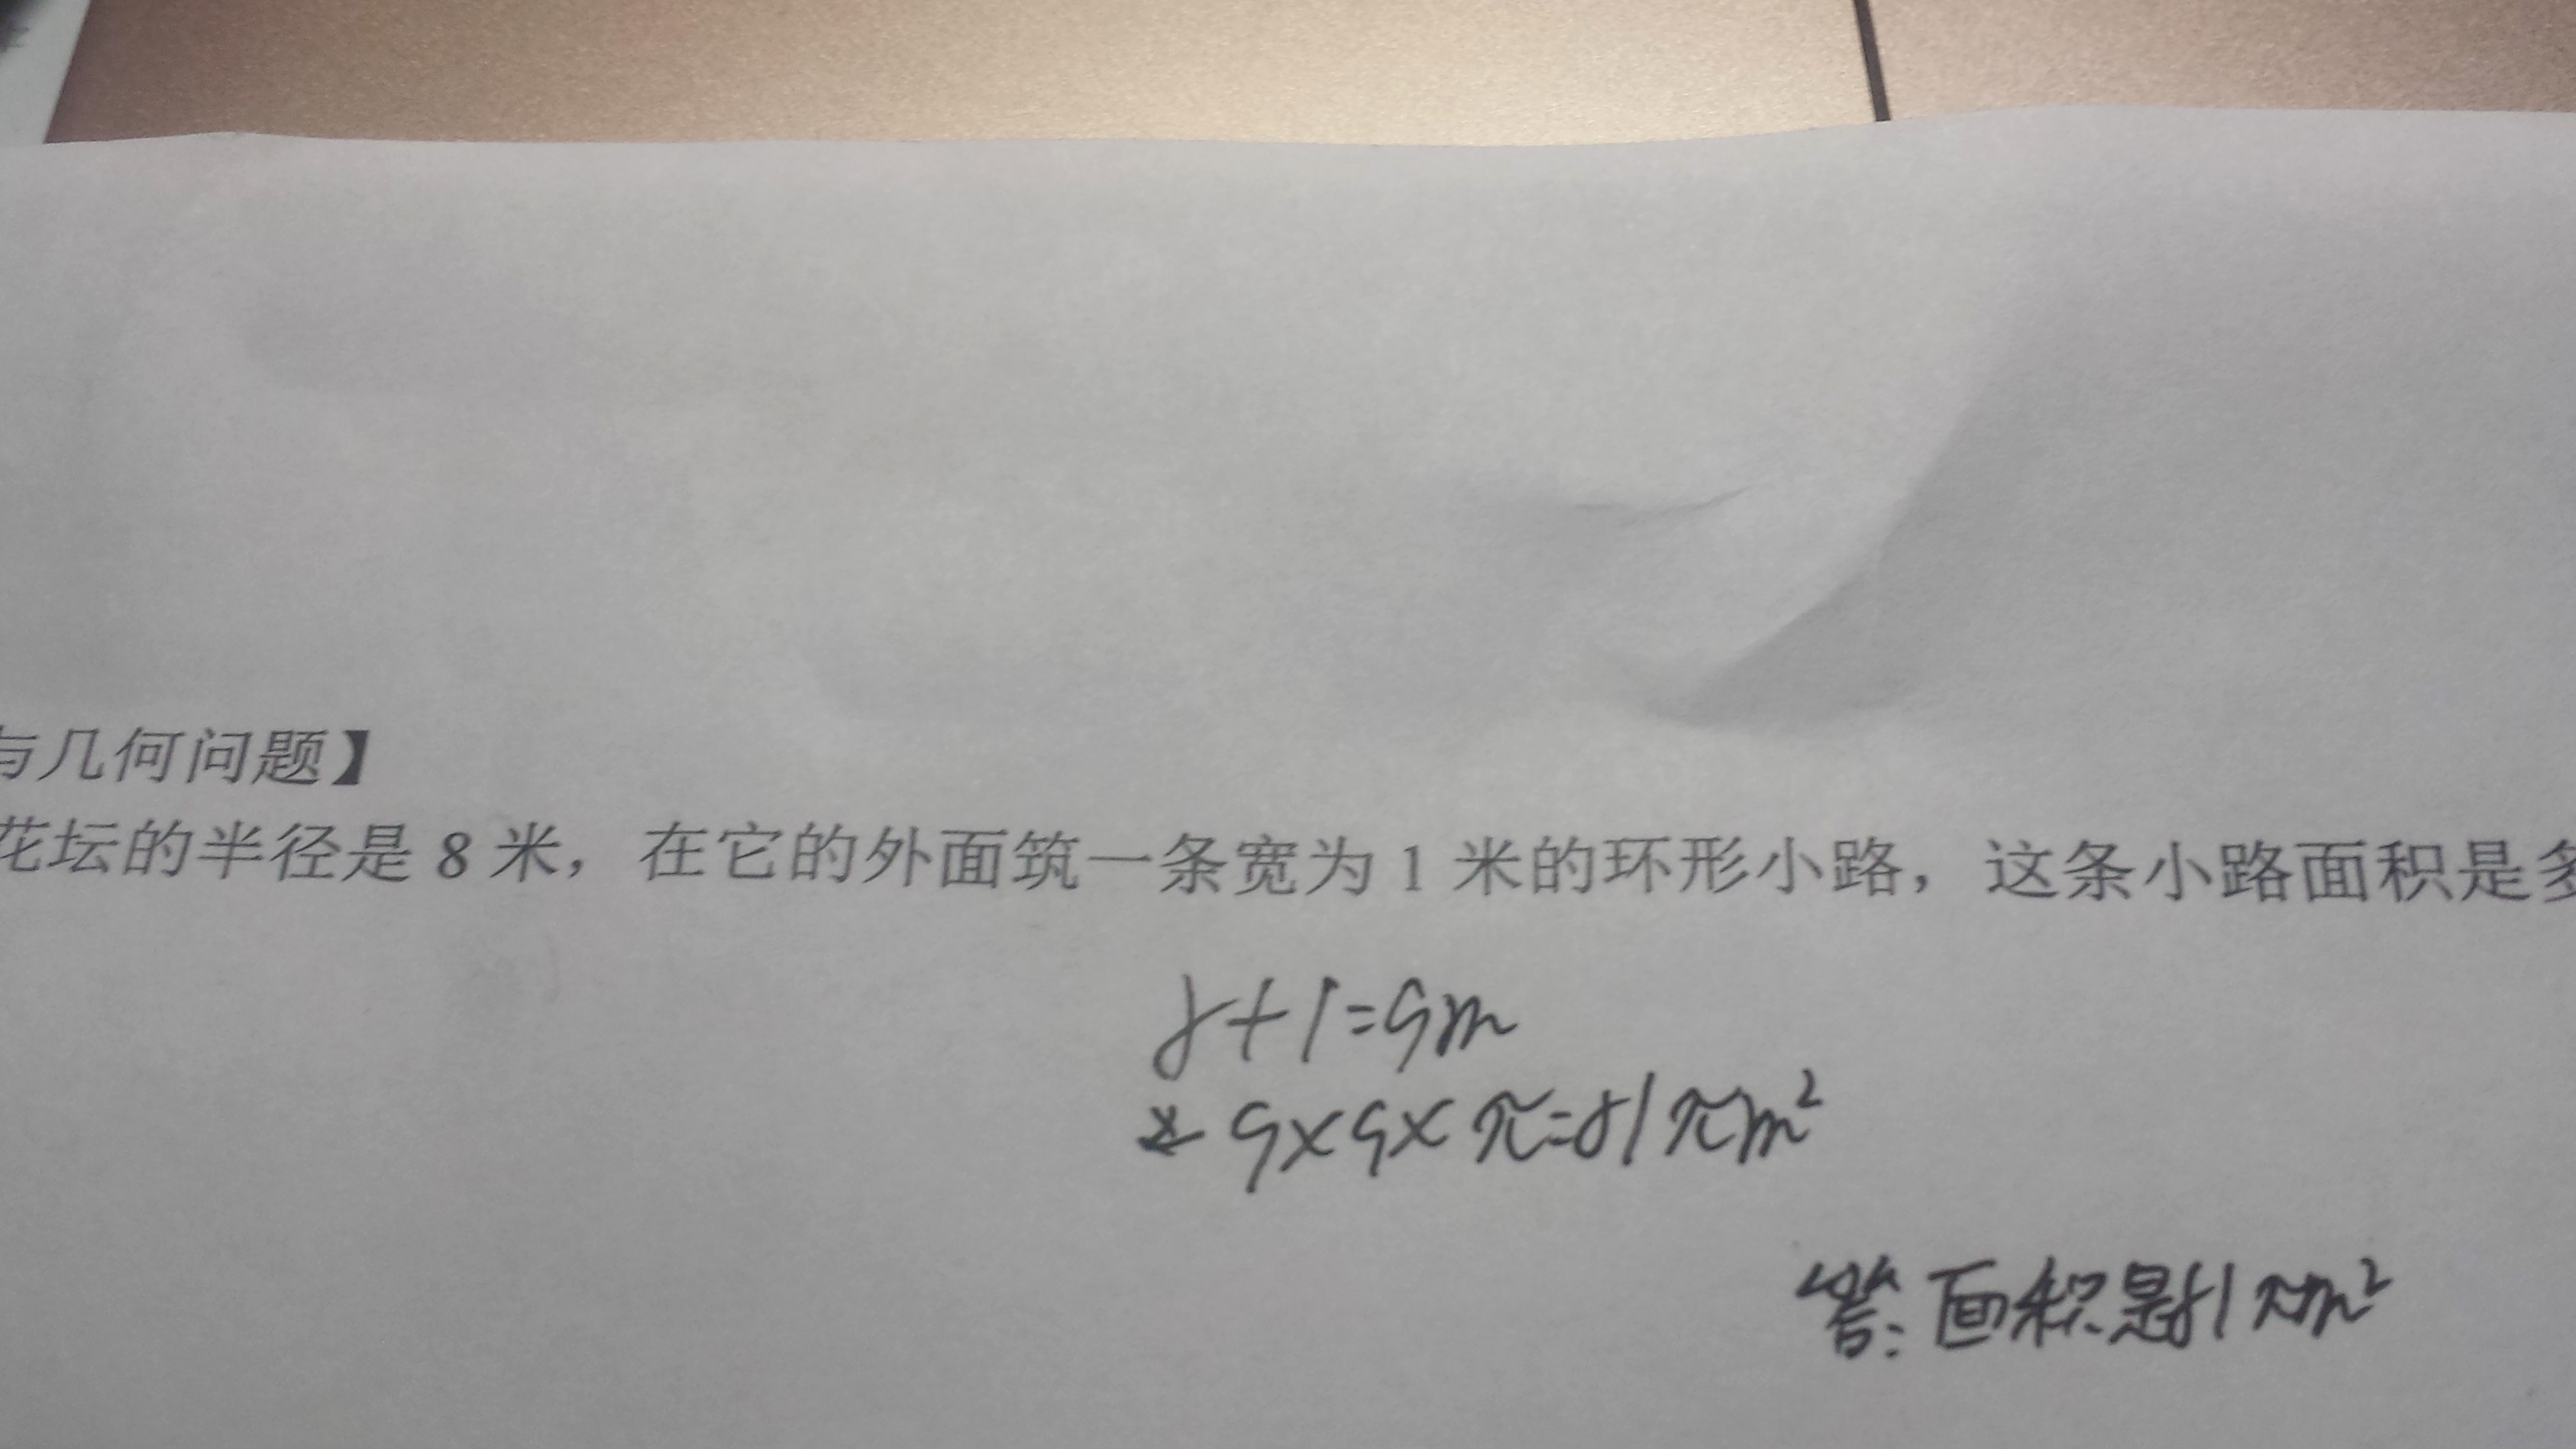 与几何问题】
花坛的半径是 8 米，在它的外面筑一条宽为 1 米的环形小路，这条小路面积是多
8+1=9m
9×9×π=81πm²
答：面积是81πm²